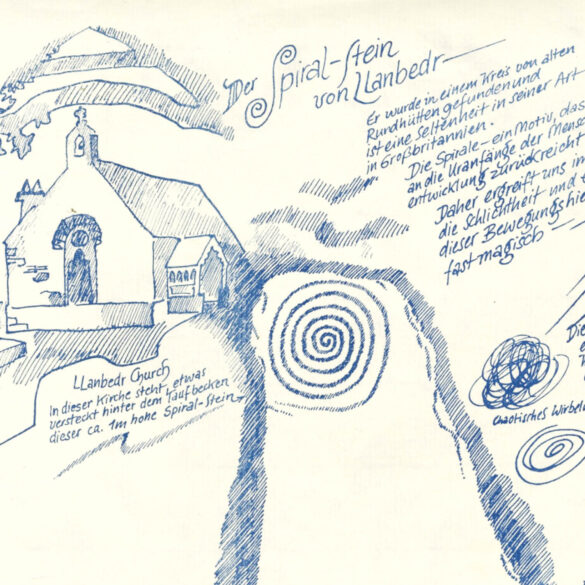 Der Spiral-Stein
von LLanbedr
Er wurde in einem Kreis von alten
Rundhütten gefunden und
ist eine Seltenheit in seiner Art
in Großbritannien.
Die Spirale – ein Motiv, das
an die Uranfänge der Mensch
entwicklung zurückreicht
Daher ergreift uns in
die Schlichtheit und
dieser Bewegungshie
fast magisch
LLanbedr Church
In dieser Kirche steht, etwas
versteckt hinter dem Taufbecken
dieser ca. 1m hohe Spiral-Stein
Die
chaotisches Wirbel